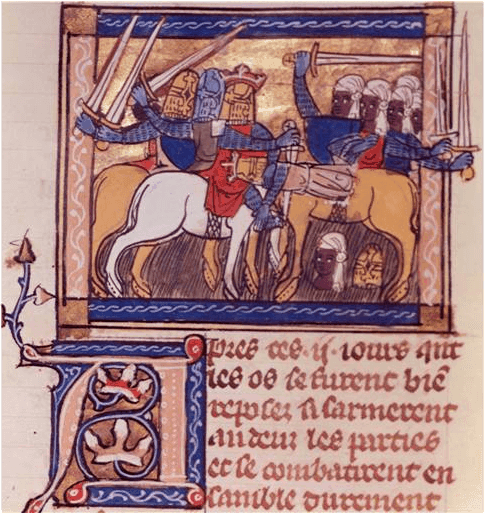 Apres ces .ij. iours que
les os se furent bie̅
reposez si sarmerent
andeux les parties
et se combatirent en
samble durement